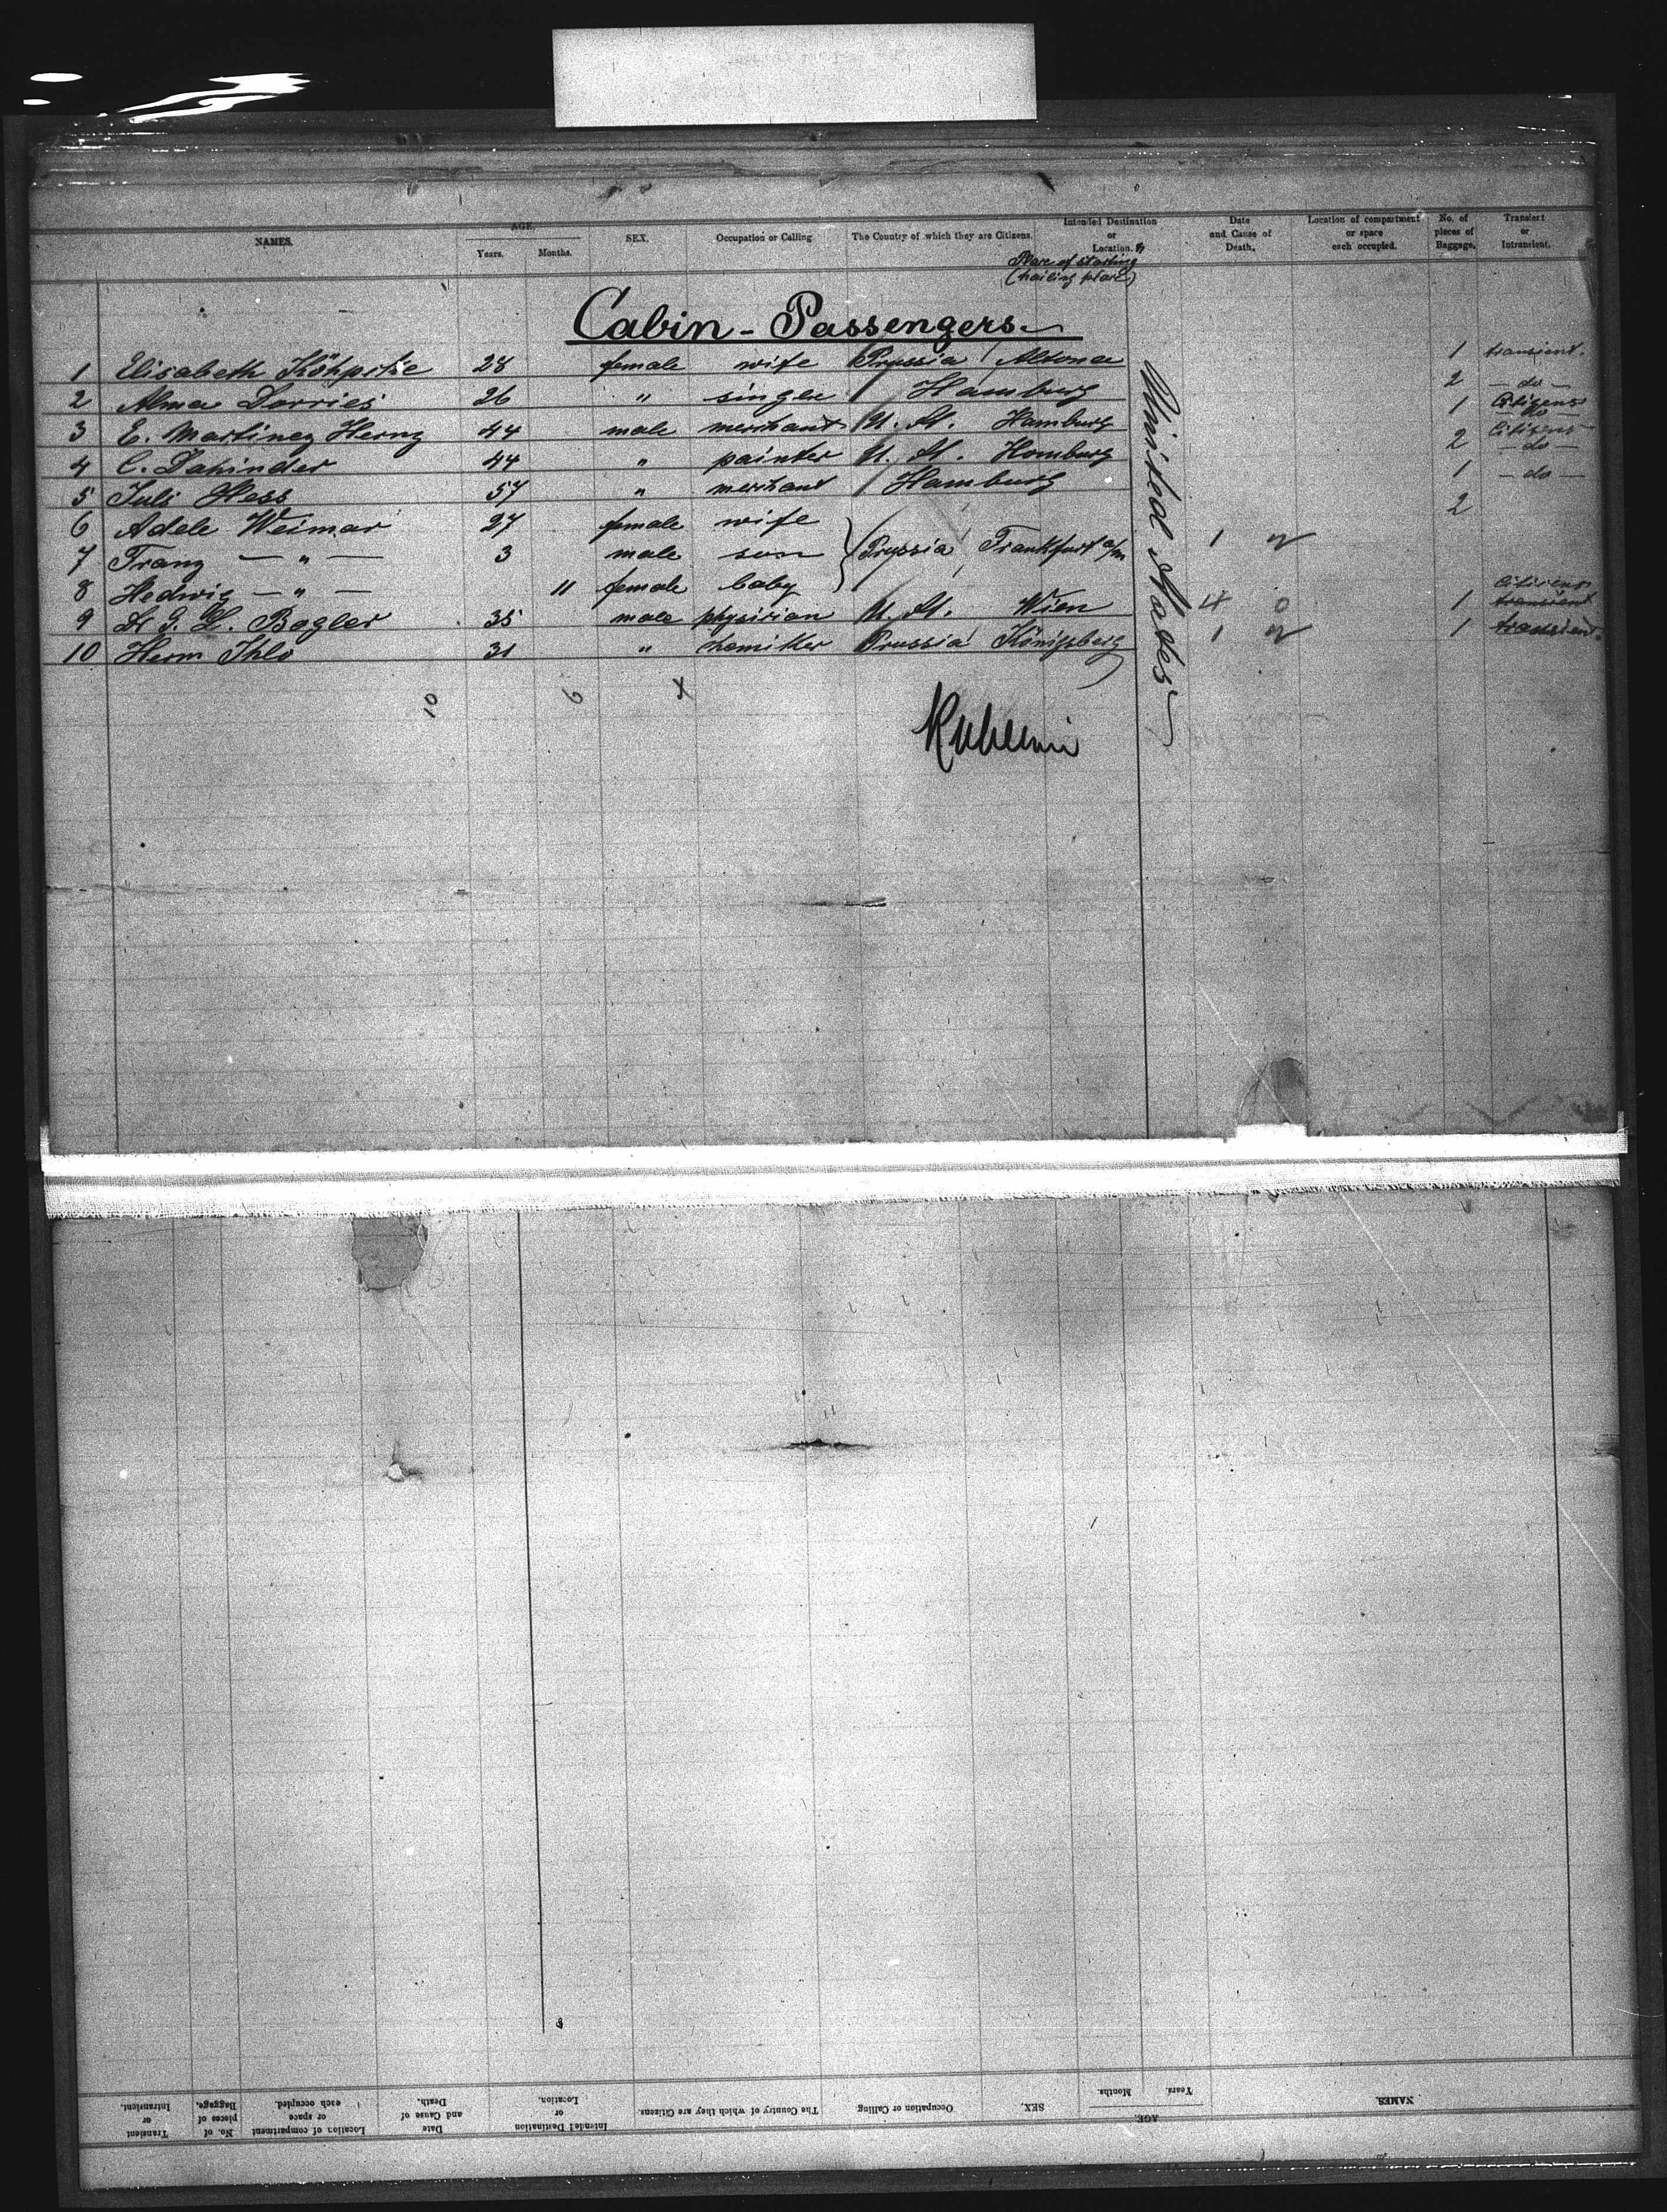 NAMES. AGE. Years. Months. SEX. Occupation or Calling The Country of which they are Citizens. Intended Destination or Location. Date and Cause of Death. Location of compartment or space each occupied. No. of pieces of Baggage. Transient or Intransient.
Place of starting
(hailing place)
Cabin - Passengers
1 Elisabeth 28 female wife Prussia Altona 1 transient.
2 Alma Dorries 26 " single Hamburg 2 - do -
3 E. Martinez Herng 44 male merchant U. St. Hamburg 1 Citizens
4 C. Dahinder 44 " painter U. St. Homburg 2 Citizens - do -
5 Juls Hess 57 " merchant Hamburg 1 - do -
6 Adele Weimar 27 female wife 2
7 Franz - " - 3 male son Prussia Frankfurt a/m 1
8 Hedwig - " - 11 female baby
9 Dr G. H. Bagler 35 male physician U. St. Wien 4 0 1 Citizens transient
10 Herm Ihlo 31 " chemiker Prussia Königsberg 1 1 transient
United States
10 6 x
Transient or Intransient. No. of pieces of Baggage. Location of compartment or space each occupied. Date and Cause of Death. Intended Destination or Location. The Country of which they are Citizens. Occupation or Calling SEX. AGE. Months. Years. NAMES.